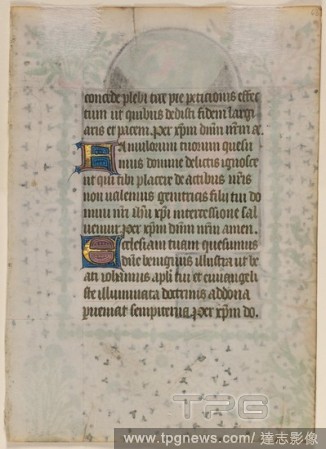 concede plebi tue pie peticionis effec
tum ut quibus dedisti fidem largi
aris et pacem. Per xpm dnm nrm ac.
Famulorum tuorum quesu
mus domine delictis ignosce
ut qui tibi placere de actibus nris
non valemus genitricis filii tui do
mini nri ihu xpi intercessione sal
uemur per xpm dnm nrm amen.
Ecclesiam tuam quesumus
dne benignus illustra ut be
ati iohannis apli tui et euuangeli
ste illuminata doctrinis ad dona
perueniat sempiterna per xpm do.
TPG
www.tpgnews.com / 達志影像